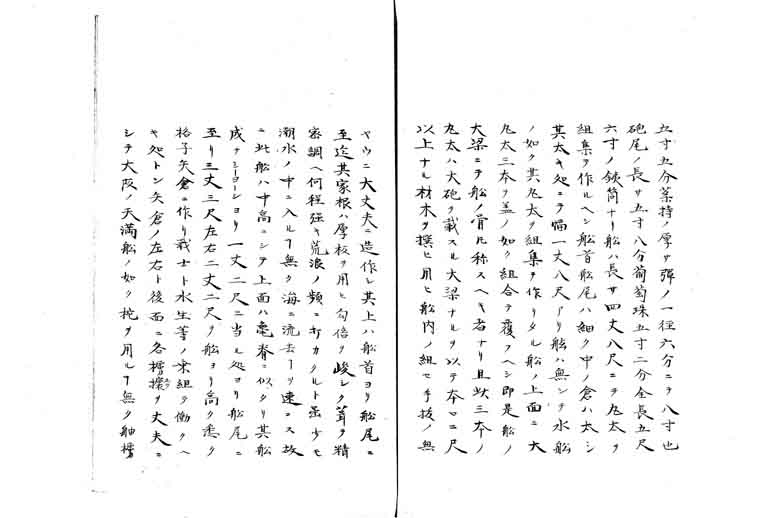 五寸五分薬持ノ厚サ弾ノ一径六分ニテ八寸也
砲尾ノ長サ五寸八分葡萄珠五寸二分全長五尺
六寸ノ鉄筒ナリ船ハ長サ四丈八尺ニテ丸太ヲ
組集テ作ルヘシ船首船尾ハ細ク中ノ倉ハ太シ
其太キ処ニテ幅一丈八尺アリ舷ハ無シテ水船
ノ如ク其丸太ヲ組集テ作リタル船ノ上面ニ大
丸太三本ヲ蓋ノ如ク組合テ覆フヘシ即是船ノ
大梁ニテ船ノ骨トモ称スヘキ者ナリ且此三本ノ
丸太ハ大砲ヲ載スル大梁ナルヲ以テ本口二尺
以上ナル材木ヲ撰ヒ用ヒ船内ノ組セ手抜ノ無
ヤウニ大丈夫ニ造作シ其上ハ船首ヨリ船尾ニ
至迄其家根ハ厚板ヲ用ヒ勾倍ヲ峻シク葺テ精
密調ヘ何程強キ荒浪ノ頻ニ打カクルト雖少モ
潮水ノ中ニ入ルヿ無ク海ニ流去ヿヲ速ニス故
ニ此船ハ中高ニシテ上面ハ亀脊ニ似タリ其船
成テシーヨーレヨリ一丈二尺ニ当ル処ヨリ船尾ニ
至リ三丈三尺左右二丈二尺ヲ船ヨリ高ク悉ク
格子矢倉ニ作リ戦士ト水主等ノ乗組テ働クヘ
キ処トシ矢倉ノ左右ト後面ニ各櫓擽ヲ丈夫ニ
シテ大阪ノ天満船ノ如ク梶ヲ用ルヿ無ク舳櫓